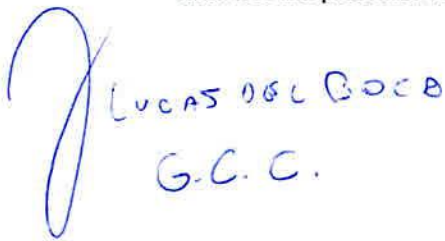 LUCAS DEL BOCA
G.C.C.